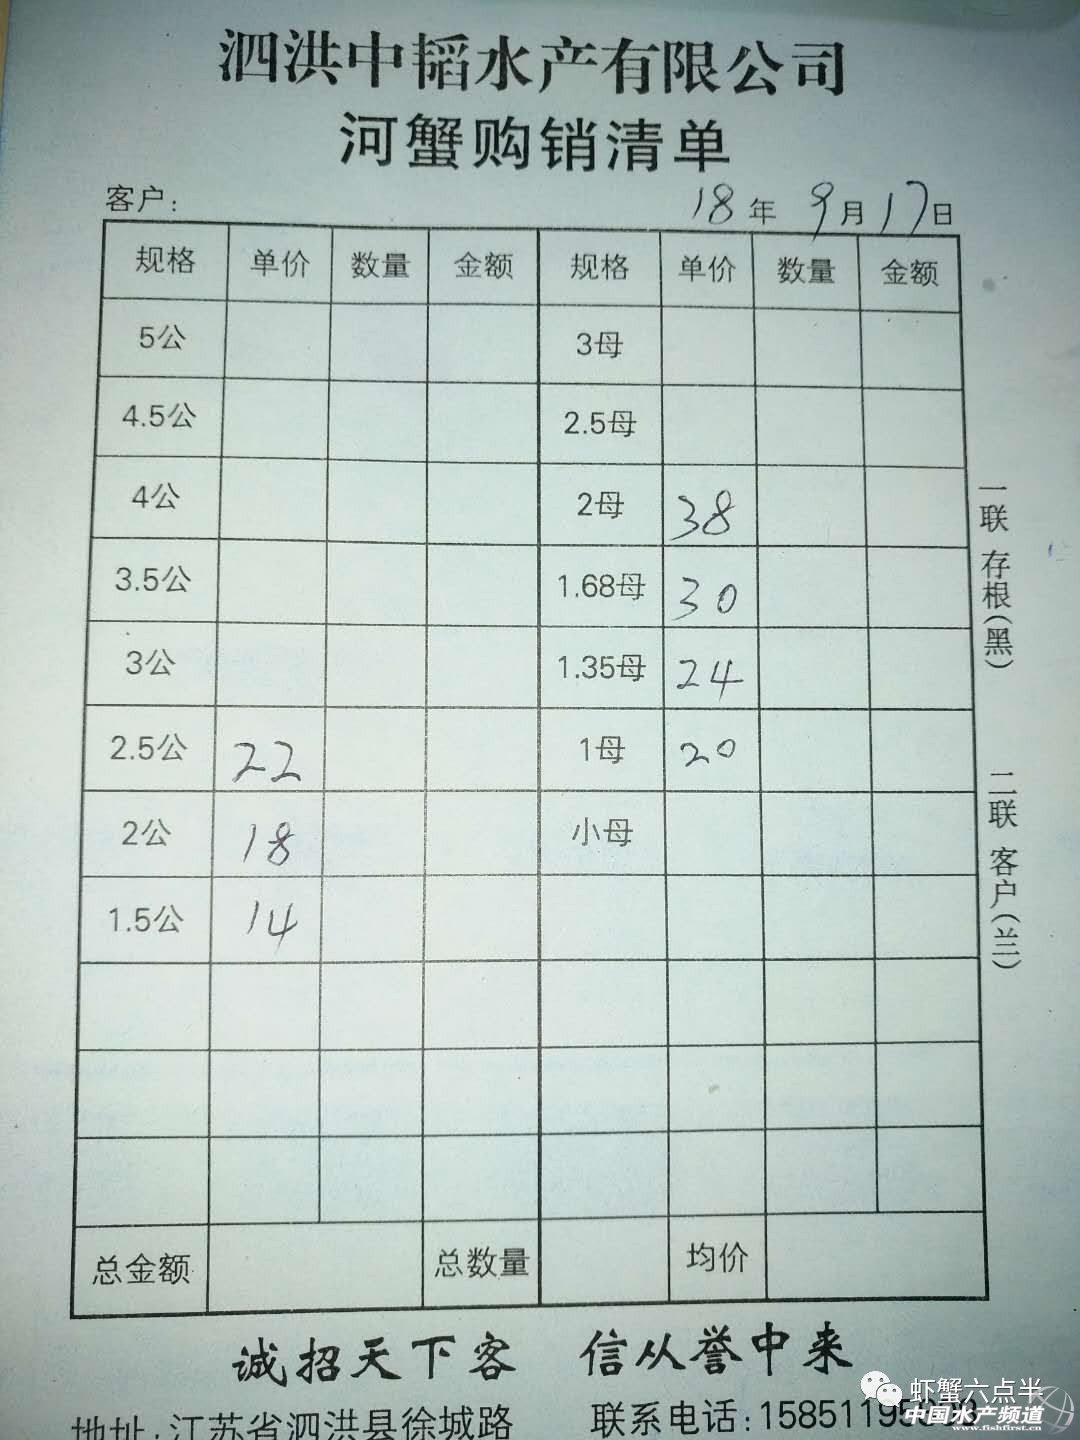 泗洪中韬水产有限公司
河蟹购销清单
客户: 18年 9月17日
规格 单价 数量 金额 规格 单价 数量 金额
5公 3母
4.5公 2.5母
4公 2母 38
3.5公 1.68母 30
3公 1.35母 24
2.5公 22 1母 20
2公 18 小母
1.5公 14
总金额 总数量 均价
一联 存根(黑)
二联 客户(兰)
诚招天下客 信从誉中来
地址:江苏省泗洪县徐城路 联系电话:15851195
虾蟹六点半
中国水产频道
www.fishfirst.cn